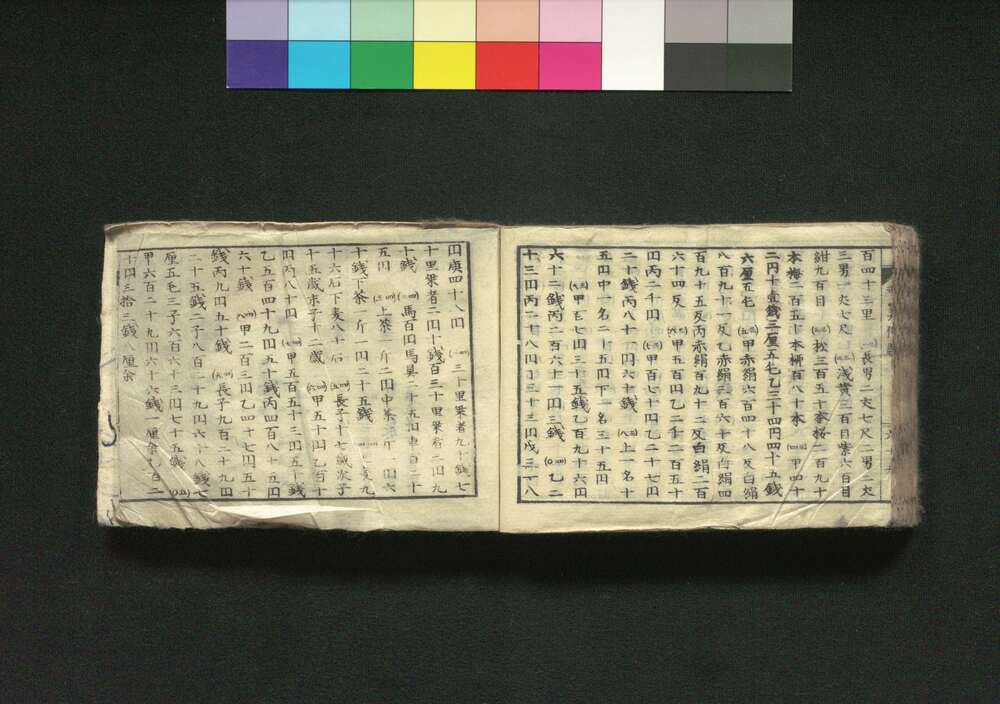 百四十三里 長男二丈七尺二男二丈
三男一丈七尺 浅黄三百目紫六百目
紺九百目 松三百五十本桜二百九十
本梅二百五十本柳百八十本 甲四十
二円十壹銭三厘五毛乙三十四円四十五銭
六厘五毛 甲赤絹六百四十八反白絹
八百九十一反乙赤絹三百六十反白絹四
百九十五反丙赤絹百九十二反白絹二百
六十四反 甲五百円乙二千二百五十
円丙二千円 甲百七十円乙二十七円
二十銭丙八十一円六十銭 上一名十
五円中一名二十五円下一名三十五円
甲七円三十五銭乙百九十六円
六十二銭丙二百六十一円三銭 乙二
十三円丙二十八円丁三十三円戊三十八
円庚四十八円 三十里乗者九十銭七
十里乗者二円十銭百三十里乗者三円九
十銭 馬百円馬具二十五円車百二十
五円 上茶一斤二円中茶一斤一円六
十銭下茶一斤一円二十五銭
十六石下麦八十石 長子十七歳次子
十五歳末子十二歳 甲五十円乙百十
円丙八十円 甲五百五十三円五十銭
乙五百四十九円五十銭丙四百八十五円
六十銭 甲二百三円乙四十七円五十
銭丙九円五十銭 長子九百二十九円
二十五銭二子八百二十九円六十八銭七
厘五毛三子六百六十三円七十五銭
甲六百二十九円六十六銭一厘余乙百二
十円三拾三銭八厘余